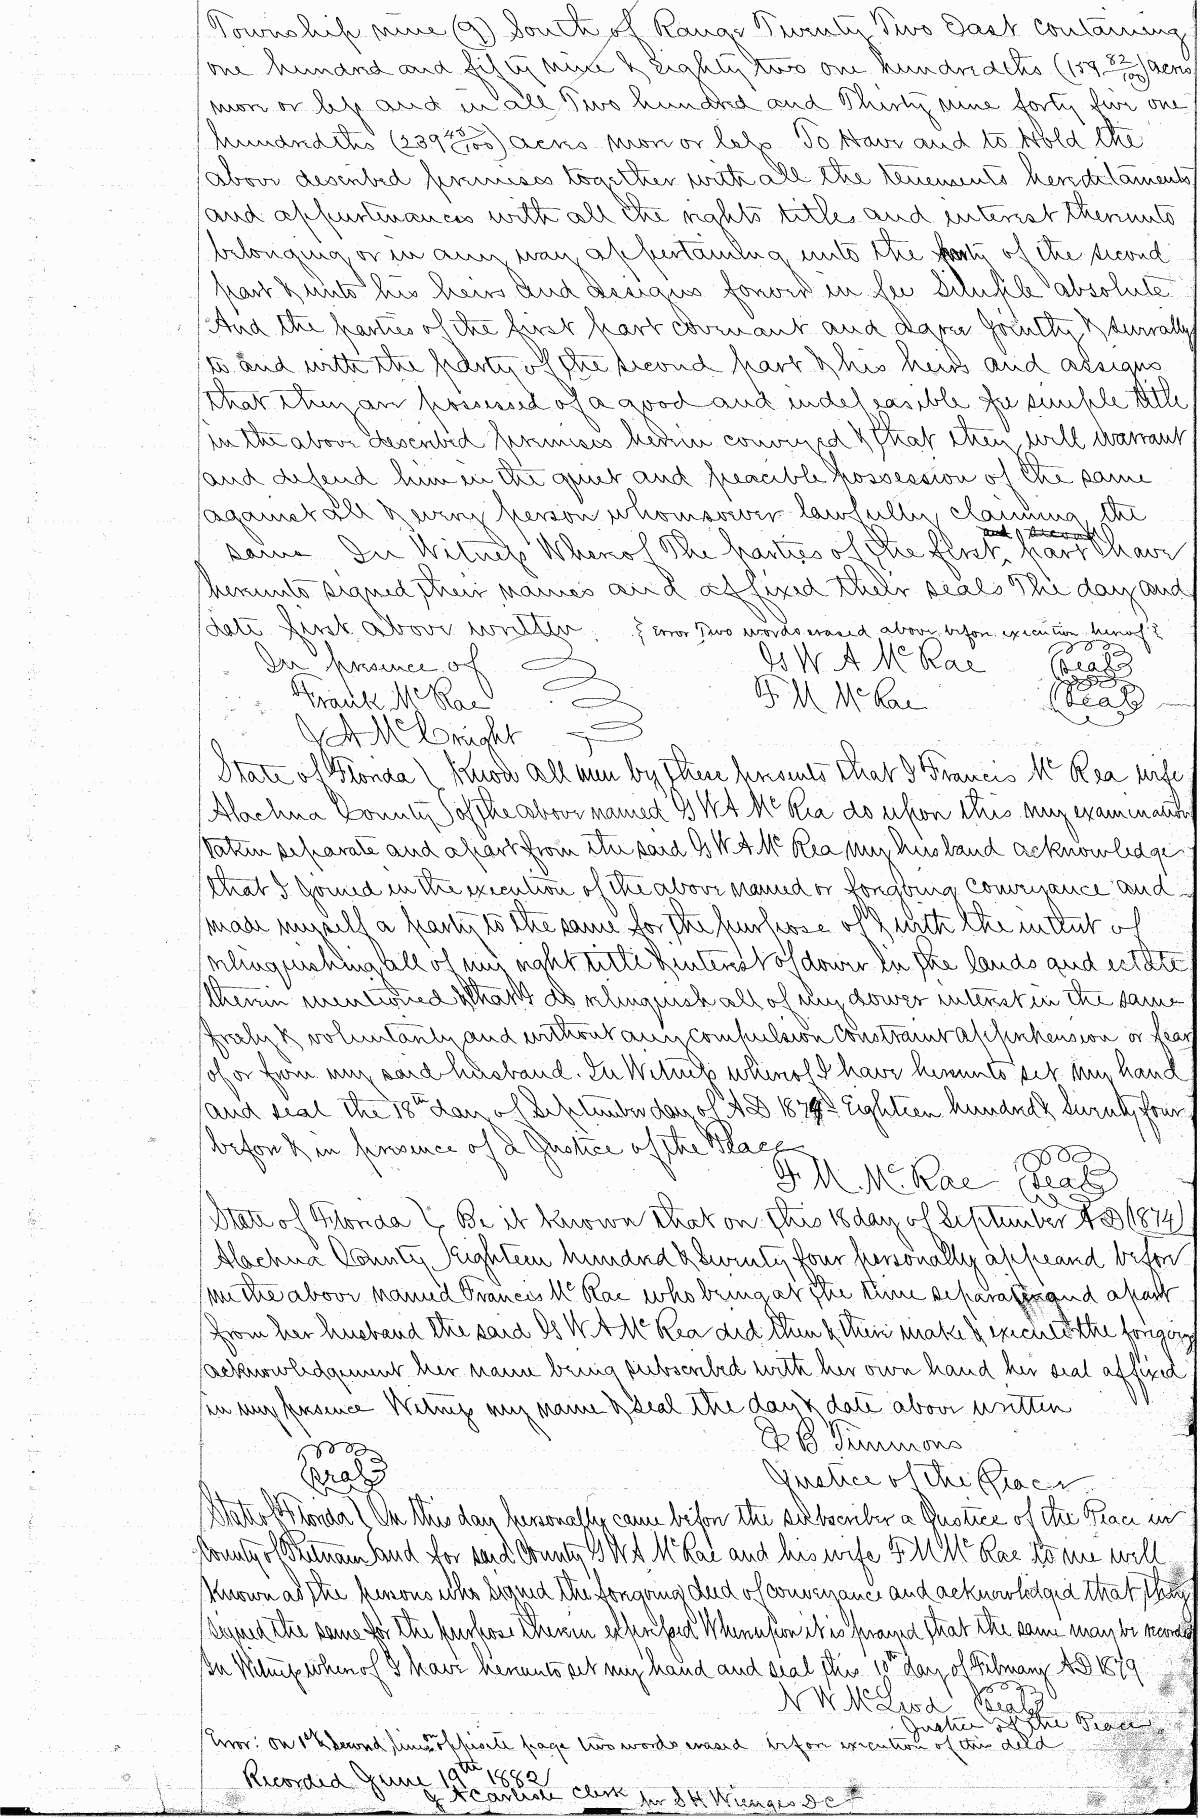 Township nine (9) South of Range Twenty Two East containing
one hundred and fifty nine & Eighty two one hundredths (159 82/100) acres
more or less and in all Two hundred and Thirty nine forty five one
hundredths (239 45/100) acres more or less To Have and to Hold the
above described premises together with all the tenements hereditaments
and appurtenances with all the rights titles and interest thereunto
belonging or in any way appertaining unto the party of the second
part & unto his heirs and assigns forever in fee Simple absolute
And the parties of the first part covenant and agree jointly & severally
to and with the party of the second part & his heirs and assigns
that they are possessed of a good and indefeasible fee simple title
in the above described premises herein conveyed & that they will warrant
and defend him in the quiet and peacible possession of the same
against all & every person whomsoever lawfully claiming the
same In Witness Whereof The parties of the first part have
hereunto signed their names and affixed their seals The day and
date first above written { Error Two words erased above before execution hereof }
In presence of G W A McRae (Seal)
Frank McRae F M McRae (Seal)
J A McCreight
State of Florida } Know all men by these presents that I Francis McRea wife
Alachua County } of the above named G W A McRea do upon this my examination
taken separate and apart from the said G W A McRea my husband acknowledge
that I joined in the execution of the above named or foregoing conveyance and
made myself a party to the same for the purpose of & with the intent of
relinquishing all of my right title & interest of dower in the lands and estate
therein mentioned & that I do relinquish all of my dower interest in the same
freely & voluntarily and without any compulsion constraint apprehension or fear
of or from my said husband. In Witness whereof I have hereunto set my hand
and seal the 18th day of September day of AD 1874 Eighteen hundred & Seventy four
before & in presence of a Justice of the Peace
F. M. McRae (Seal)
State of Florida } Be it known that on this 18 day of September AD (1874)
Alachua County } Eighteen hundred & Seventy four personally appeared before
me the above named Francis McRae who being at the time separate and apart
from her husband the said G W A McRea did then & there make & execute the foregoing
acknowledgement her name being subscribed with her own hand her seal affixed
in my presence Witness my name & seal the day & date above written
B Timmons
(Seal) Justice of the Peace
State of Florida } On this day personally came before the subscriber a Justice of the Peace in
County of Putnam } and for said County G W A McRae and his wife F M McRae to me well
known as the persons who signed the foregoing deed of conveyance and acknowledged that they
signed the same for the purpose therein expressed Whereupon it is prayed that the same may be recorded
In Witness whereof I have hereunto set my hand and seal this 10th day of February AD 1879
N W McLeod (Seal)
Justice of the Peace
Error: on 1st & second lines on opposite page two words erased before execution of this deed
Recorded June 19th 1882
J A Carlisle Clerk